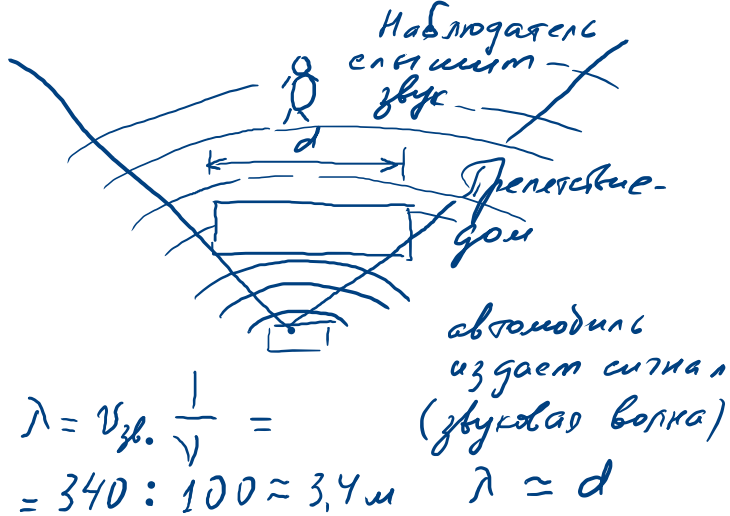 Наблюдатель
слышит
звук
d
Препятствие-
дом
автомобиль
издает сигнал
(звуковая волна)
λ = v зв. 1/ν =
= 340 : 100 ≈ 3,4 м
λ ≃ d